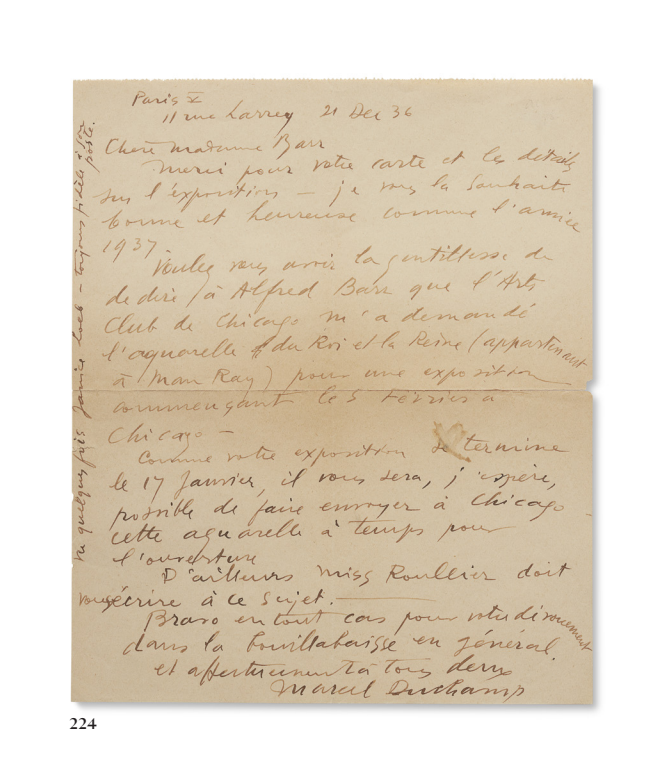 Paris V
11 rue Larrey 21 Dec 36
Chère Madame Barr
Merci pour votre carte et les détails
sur l'exposition – je vous la souhaite
bonne et heureuse comme l'année
1937.
Voulez vous avoir la gentillesse de
de dire à Alfred Barr que l'Arts
Club de Chicago m'a demandé
l'aquarelle du Roi et la Reine (appartenant
à Man Ray) pour une exposition
commençant le 5 Février à
Chicago –
Comme votre exposition se termine
le 17 Janvier, il vous sera, j'espère,
possible de faire envoyer à Chicago –
cette aquarelle à temps pour
l'ouverture
D'ailleurs Miss Roullier doit
vous écrire à ce sujet.
Bravo en tout cas pour votre dévouement
dans la bouillabaisse en général.
et affectueusement à tous deux
Marcel Duchamp
vu quelques fois Janice Loeb – toujours fidèle à son
poste.
224